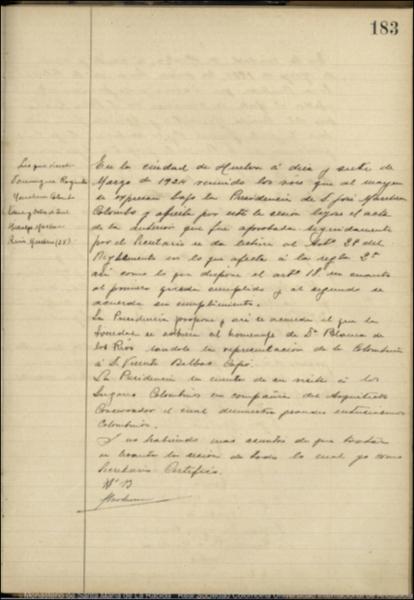 183
Dominguez Roqueta
Marchena Colombo
Hidalgo Machado
Ruiz Marchena (J.)
En la ciudad de Huelva á diez y siete de
Marzo de 1924 reunido los sres que al margen
se expresan bajo la Presidencia de D. José Marchena
Colombo y abierta por este la sesion leyose el acta
de la anterior que fué aprobada seguidamente
por el Secretario se da lectura al Artº 2º del
Reglamento en lo que afecta á la regla 2ª
asi como lo que dispone el artº 18 en cuanto
al primero queda cumplido y al segundo se
acuerda su cumplimiento.
La Presidencia propone y asi se acuerda el que la
Sociedad se adhiera al homenaje de Dª Blanca de
los Rios dandole la representación de la Colombina
á D. Vicente Balbas Capó.
La Presidencia da cuenta de su visita á los
Lugares Colombinos en compañia del Arquitecto
Conservador el cual demuestra grandes entusiasmos
Colombinos.
Y no habiendo mas asuntos de que tratar
se levanta la sesion de todo lo cual yo como
Secretario Certifico.
Vº Bº
Marchena
Monasterio de Santa María de La Rábida - Real Sociedad Colombina Onubense